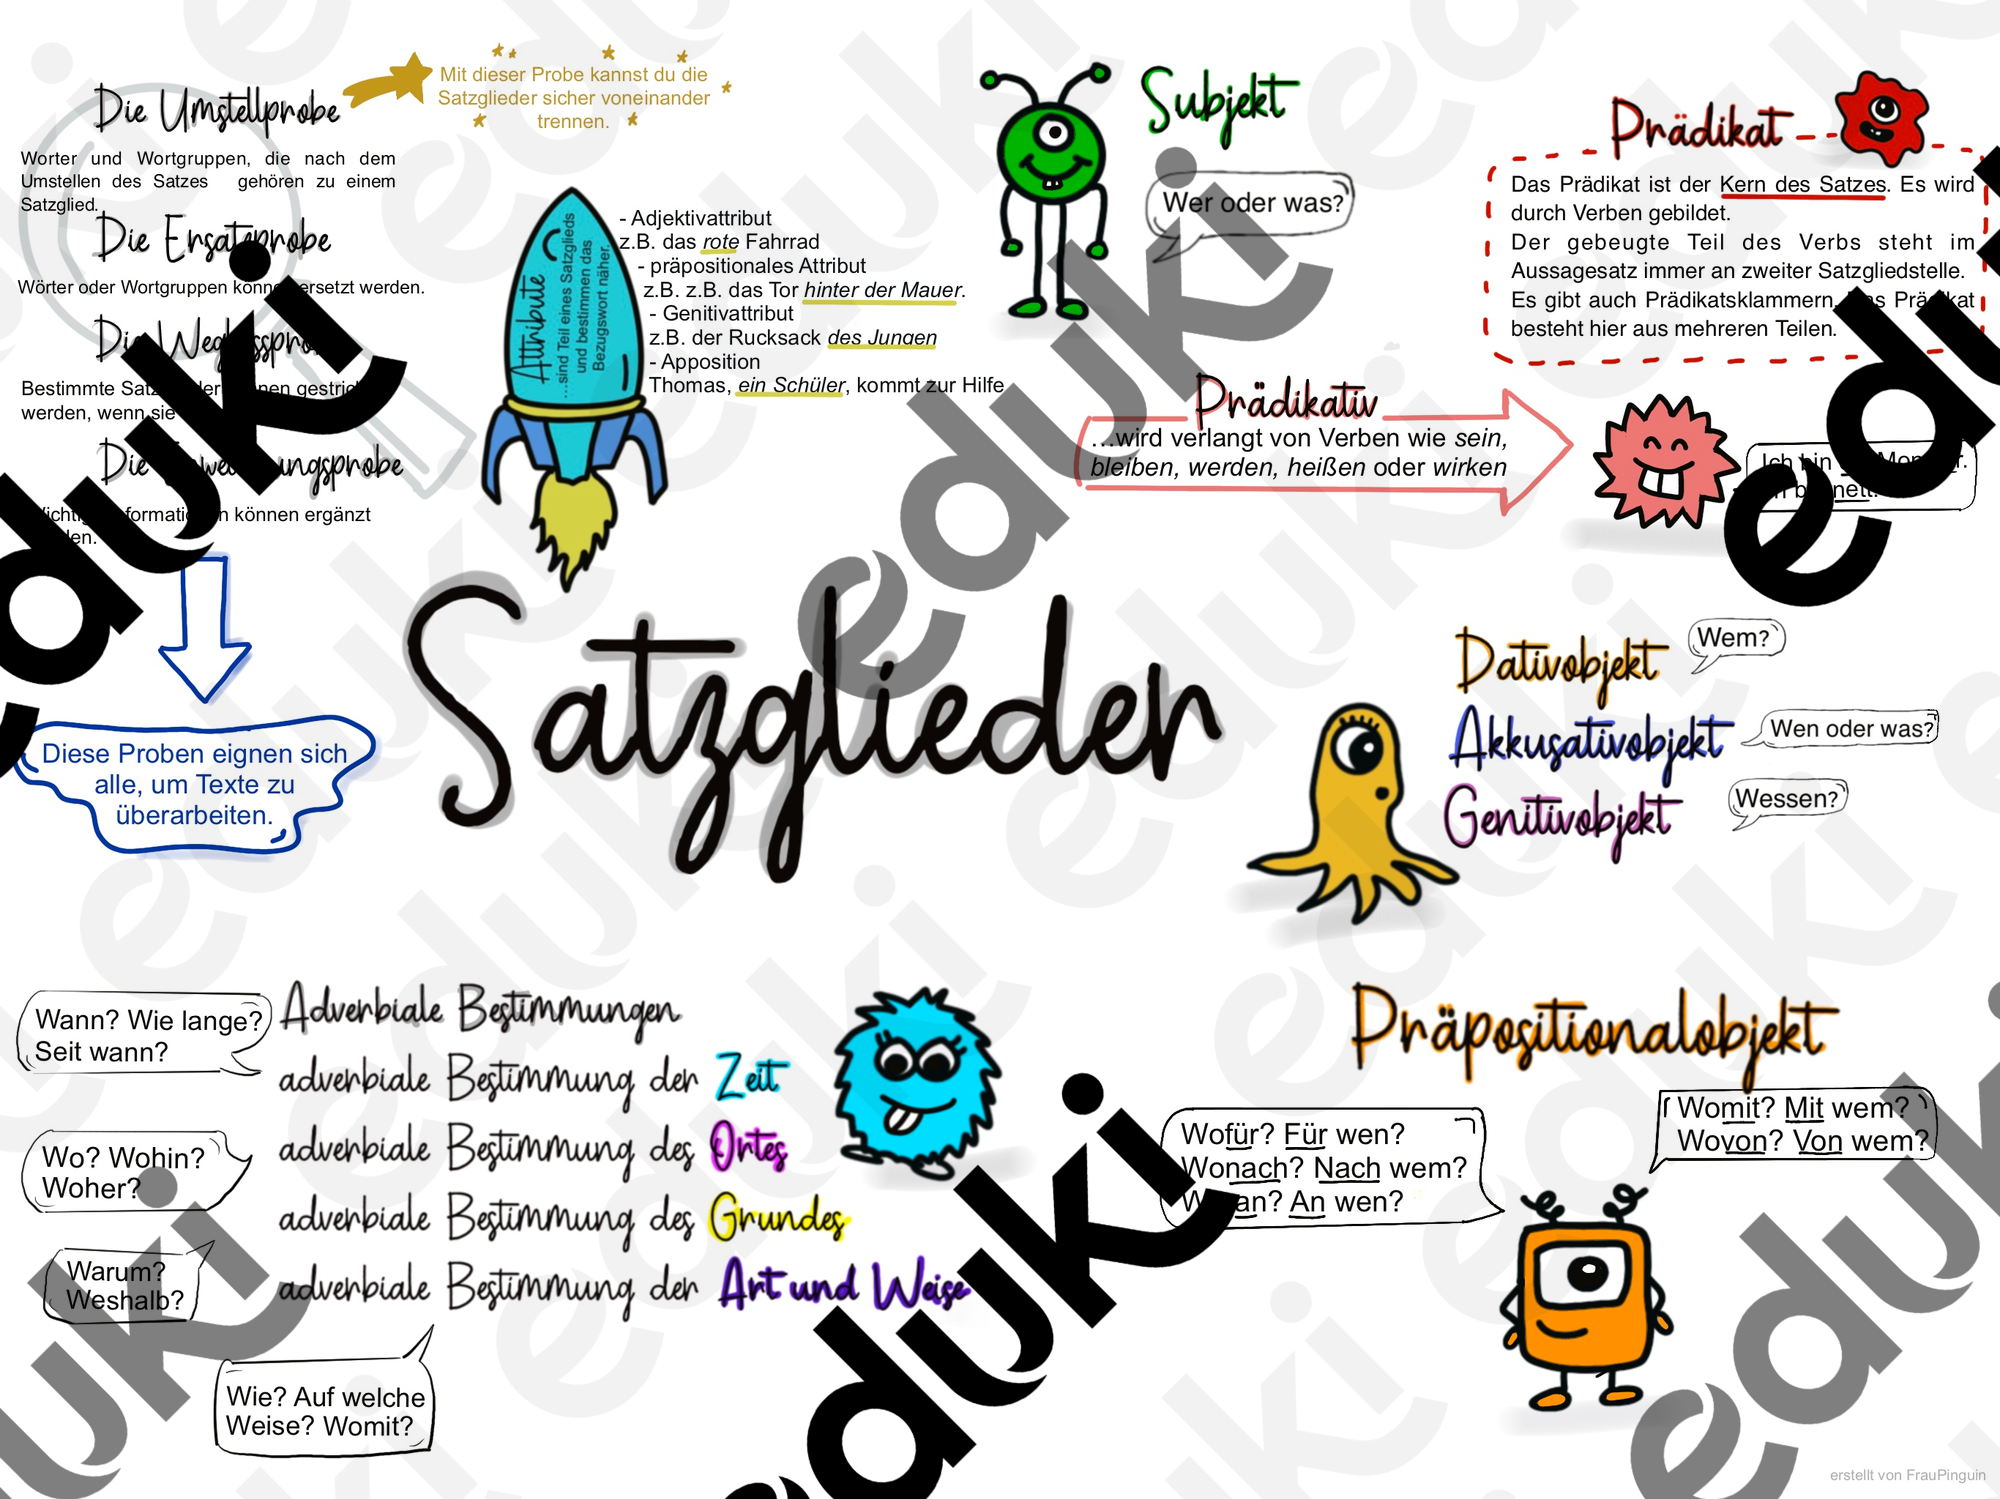 Die Umstellprobe
Mit dieser Probe kannst du die
Satzglieder sicher voneinander
trennen.
Worter und Wortgruppen, die nach dem
Umstellen des Satzes gehören zu einem
Satzglied.
Die Ersatzprobe
Wörter oder Wortgruppen können ersetzt werden.
Die Weglassprobe
Bestimmte Satzglieder können
werden, wenn sie
Die
Wichtige Informationen können ergänzt
werden.
Diese Proben eignen sich
alle, um Texte zu
überarbeiten.
Attribute
...sind Teil eines Satzglieds
und bestimmen das
Bezugswort näher.
- Adjektivattribut
z.B. das rote Fahrrad
- präpositionales Attribut
z.B. z.B. das Tor hinter der Mauer.
- Genitivattribut
z.B. der Rucksack des Jungen
- Apposition
Thomas, ein Schüler, kommt zur Hilfe
Subjekt
Wer oder was?
Prädikat
Das Prädikat ist der Kern des Satzes. Es wird
durch Verben gebildet.
Der gebeugte Teil des Verbs steht im
Aussagesatz immer an zweiter Satzgliedstelle.
Es gibt auch Prädikatsklammern. Das Prädikat
besteht hier aus mehreren Teilen.
Prädikativ
...wird verlangt von Verben wie sein,
bleiben, werden, heißen oder wirken
Ich bin
nett.
Satzglieder
Dativobjekt
Wem?
Akkusativobjekt
Wen oder was?
Genitivobjekt
Wessen?
Adverbiale Bestimmungen
Wann? Wie lange?
Seit wann?
adverbiale Bestimmung der Zeit
Wo? Wohin?
Woher?
adverbiale Bestimmung des Ortes
adverbiale Bestimmung des Grundes
Warum?
Weshalb?
adverbiale Bestimmung der Art und Weise
Wie? Auf welche
Weise? Womit?
Präpositionalobjekt
Wofür? Für wen?
Wonach? Nach wem?
An wen?
Womit? Mit wem?
Wovon? Von wem?
erstellt von FrauPinguin
eduki
eduki
eduki
eduki
eduki
eduki